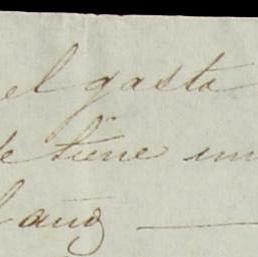 el gasto
le tiene un
l año